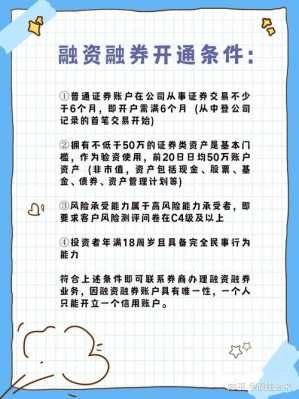 融资融券开通条件:
①普通证券账户在公司从事证券交易不少
于6个月,即开户需满6个月(从中登公司
记录的首笔交易开始)
②拥有不低于50万的证券类资产是基本门
槛,作为验资使用,前20日日均50万账户
资产(非市值,资产包括现金、股票、基
金、债券、资产管理计划等)
③风险承受能力属于高风险能力承受者,即
要求客户风险测评问卷在C4级及以上
④投资者年满18周岁且具备完全民事行为
能力
符合上述条件即可联系券商办理融资融券
业务,因融资融券账户具有唯一性,一个人
只能开立一个信用账户。